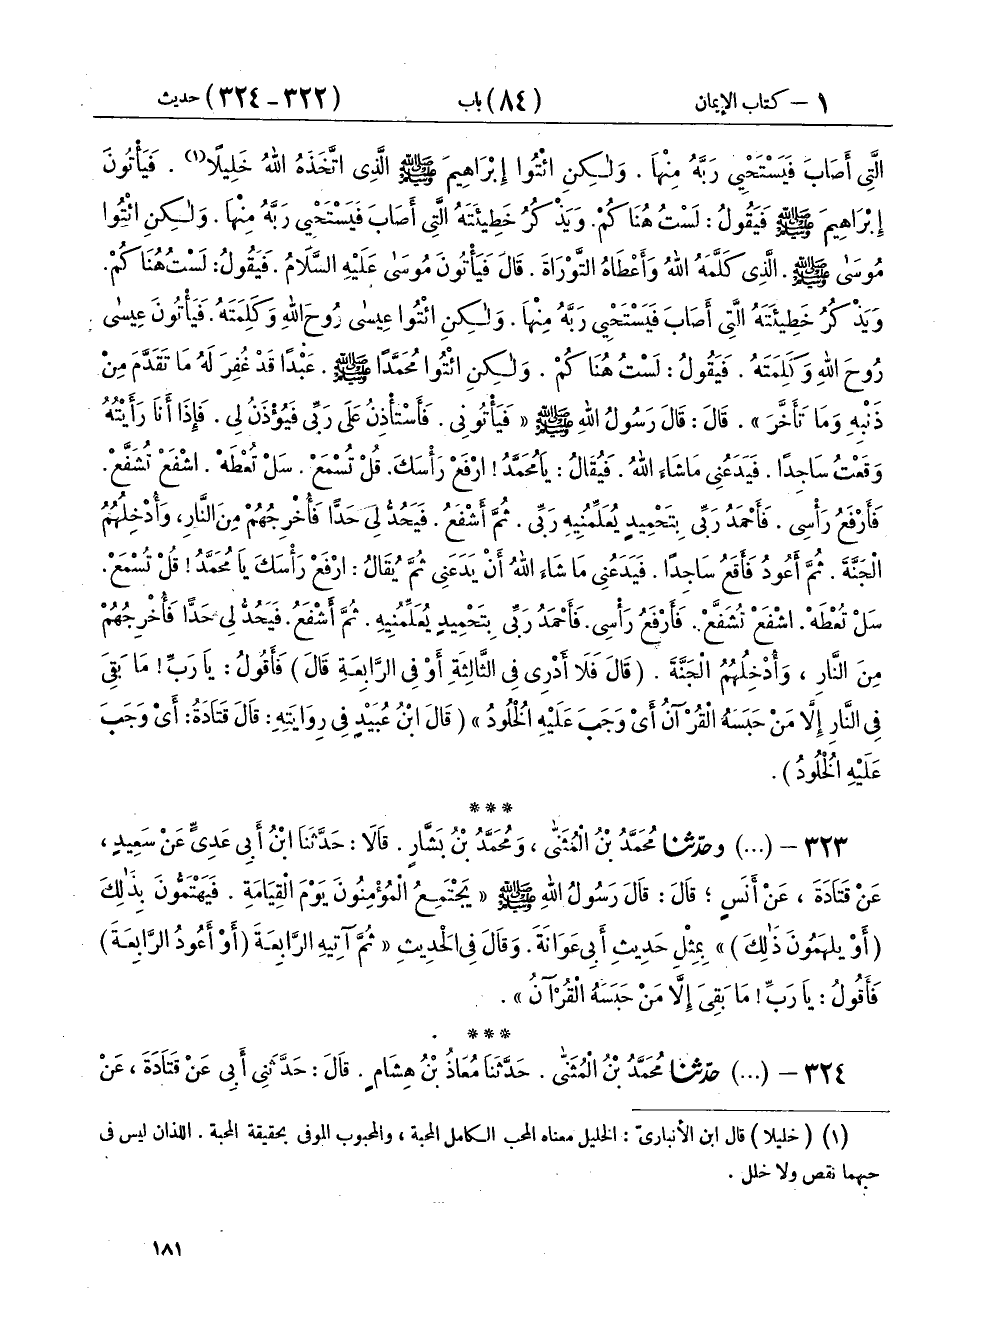 ١ – كتاب الإيمان (٨٤) باب (٣٢٢-٣٢٤) حديث
الَّتِى أَصَابَ فَيَسْتَحْيِي رَبَّهُ مِنْهَا . وَلَـٰكِنِ ائْتُوا إِبْرَاهِيمَ ﷺ الَّذِى اتَّخَذَهُ اللهُ خَلِيلًا(١) . فَيَأْتُونَ
إِبْرَاهِيمَ ﷺ فَيَقُولُ : لَسْتُ هُنَاكُمْ. وَيَذْكُرُ خَطِيئَتَهُ الَّتِى أَصَابَ فَيَسْتَحْيِي رَبَّهُ مِنْهَا. وَلَـٰكِنِ ائْتُوا
مُوسَىٰ ﷺ . الَّذِى كَلَّمَهُ اللهُ وَأَعْطَاهُ التَّوْرَاةَ . قَالَ فَيَأْتُونَ مُوسَىٰ عَلَيْهِ السَّلَامُ . فَيَقُولُ: لَسْتُ هُنَاكُمْ.
وَيَذْكُرُ خَطِيئَتَهُ الَّتِى أَصَابَ فَيَسْتَحْيِي رَبَّهُ مِنْهَا. وَلَـٰكِنِ ائْتُوا عِيسَىٰ رُوحَ اللهِ وَكَلِمَتَهُ . فَيَأْتُونَ عِيسَىٰ
رُوحَ اللهِ وَكَلِمَتَهُ . فَيَقُولُ : لَسْتُ هُنَاكُمْ . وَلَـٰكِنِ ائْتُوا مُحَمَّدًا ﷺ . عَبْدًا قَدْ غُفِرَ لَهُ مَا تَقَدَّمَ مِنْ
ذَنْبِهِ وَمَا تَأَخَّرَ » . قَالَ : قَالَ رَسُولُ اللهِ ﷺ « فَيَأْتُونِى . فَأَسْتَأْذِنُ عَلَى رَبِّى فَيُؤْذَنُ لِى . فَإِذَا أَنَا رَأَيْتُهُ
وَقَعْتُ سَاجِدًا . فَيَدَعُنِى مَاشَاءَ اللهُ . فَيُقَالُ : يَامُحَمَّدُ ! ارْفَعْ رَأْسَكَ. قُلْ تُسْمَعْ . سَلْ تُعْطَهْ . اشْفَعْ تُشَفَّعْ.
فَأَرْفَعُ رَأْسِى . فَأَحْمَدُ رَبِّى بِتَحْمِيدٍ يُعَلِّمُنِيهِ رَبِّى . ثُمَّ أَشْفَعُ . فَيَحُدُّ لِى حَدًّا فَأُخْرِجُهُمْ مِنَ النَّارِ، وَأُدْخِلُهُمُ
الْجَنَّةَ . ثُمَّ أَعُودُ فَأَقَعُ سَاجِدًا . فَيَدَعُنِى مَا شَاءَ اللهُ أَنْ يَدَعَنِى ثُمَّ يُقَالُ : ارْفَعْ رَأْسَكَ يَا مُحَمَّدُ ! قُلْ تُسْمَعْ.
سَلْ تُعْطَهْ. اشْفَعْ تُشَفَّعْ. فَأَرْفَعُ رَأْسِى. فَأَحْمَدُ رَبِّى بِتَحْمِيدٍ يُعَلِّمُنِيهِ . ثُمَّ أَشْفَعُ. فَيَحُدُّ لِى حَدًّا فَأُخْرِجُهُمْ
مِنَ النَّارِ ، وَأُدْخِلُهُمُ الْجَنَّةَ . ( قَالَ فَلَا أَدْرِى فِى الثَّالِثَةِ أَوْ فِى الرَّابِعَةِ قَالَ ) فَأَقُولُ : يَا رَبِّ ! مَا بَقِىَ
فِى النَّارِ إِلَّا مَنْ حَبَسَهُ الْقُرْآنُ أَىْ وَجَبَ عَلَيْهِ الْخُلُودُ » ( قَالَ ابْنُ عُبَيْدٍ فِى رِوَايَتِهِ : قَالَ قَتَادَةُ: أَىْ وَجَبَ
عَلَيْهِ الْخُلُودُ ) .
***
٣٢٣ – (...) وحدّثنا مُحَمَّدُ بْنُ الْمُثَنَّىٰ ، وَمُحَمَّدُ بْنُ بَشَّارٍ . قَالَا : حَدَّثَنَا ابْنُ أَبِى عَدِىٍّ عَنْ سَعِيدٍ ،
عَنْ قَتَادَةَ ، عَنْ أَنَسٍ ؛ قَالَ : قَالَ رَسُولُ اللهِ ﷺ « يَجْتَمِعُ الْمُؤْمِنُونَ يَوْمَ الْقِيَامَةِ . فَيَهْتَمُّونَ بِذَٰلِكَ
( أَوْ يُلْهَمُونَ ذَٰلِكَ ) » بِمِثْلِ حَدِيثِ أَبِى عَوَانَةَ . وَقَالَ فِى الْحَدِيثِ « ثُمَّ آتِيهِ الرَّابِعَةَ ( أَوْ أَعُودُ الرَّابِعَةَ )
فَأَقُولُ : يَا رَبِّ ! مَا بَقِىَ إِلَّا مَنْ حَبَسَهُ الْقُرْآنُ » .
***
٣٢٤ – (...) حدّثنا مُحَمَّدُ بْنُ الْمُثَنَّىٰ . حَدَّثَنَا مُعَاذُ بْنُ هِشَامٍ . قَالَ : حَدَّثَنِى أَبِى عَنْ قَتَادَةَ ، عَنْ
(١) ( خليلا ) قال ابن الأنبارىّ : الخليل معناه المحب الكامل المحبة ، والمحبوب الموفى بحقيقة المحبة . اللذان ليس فى
حبهما نقص ولا خلل .
١٨١